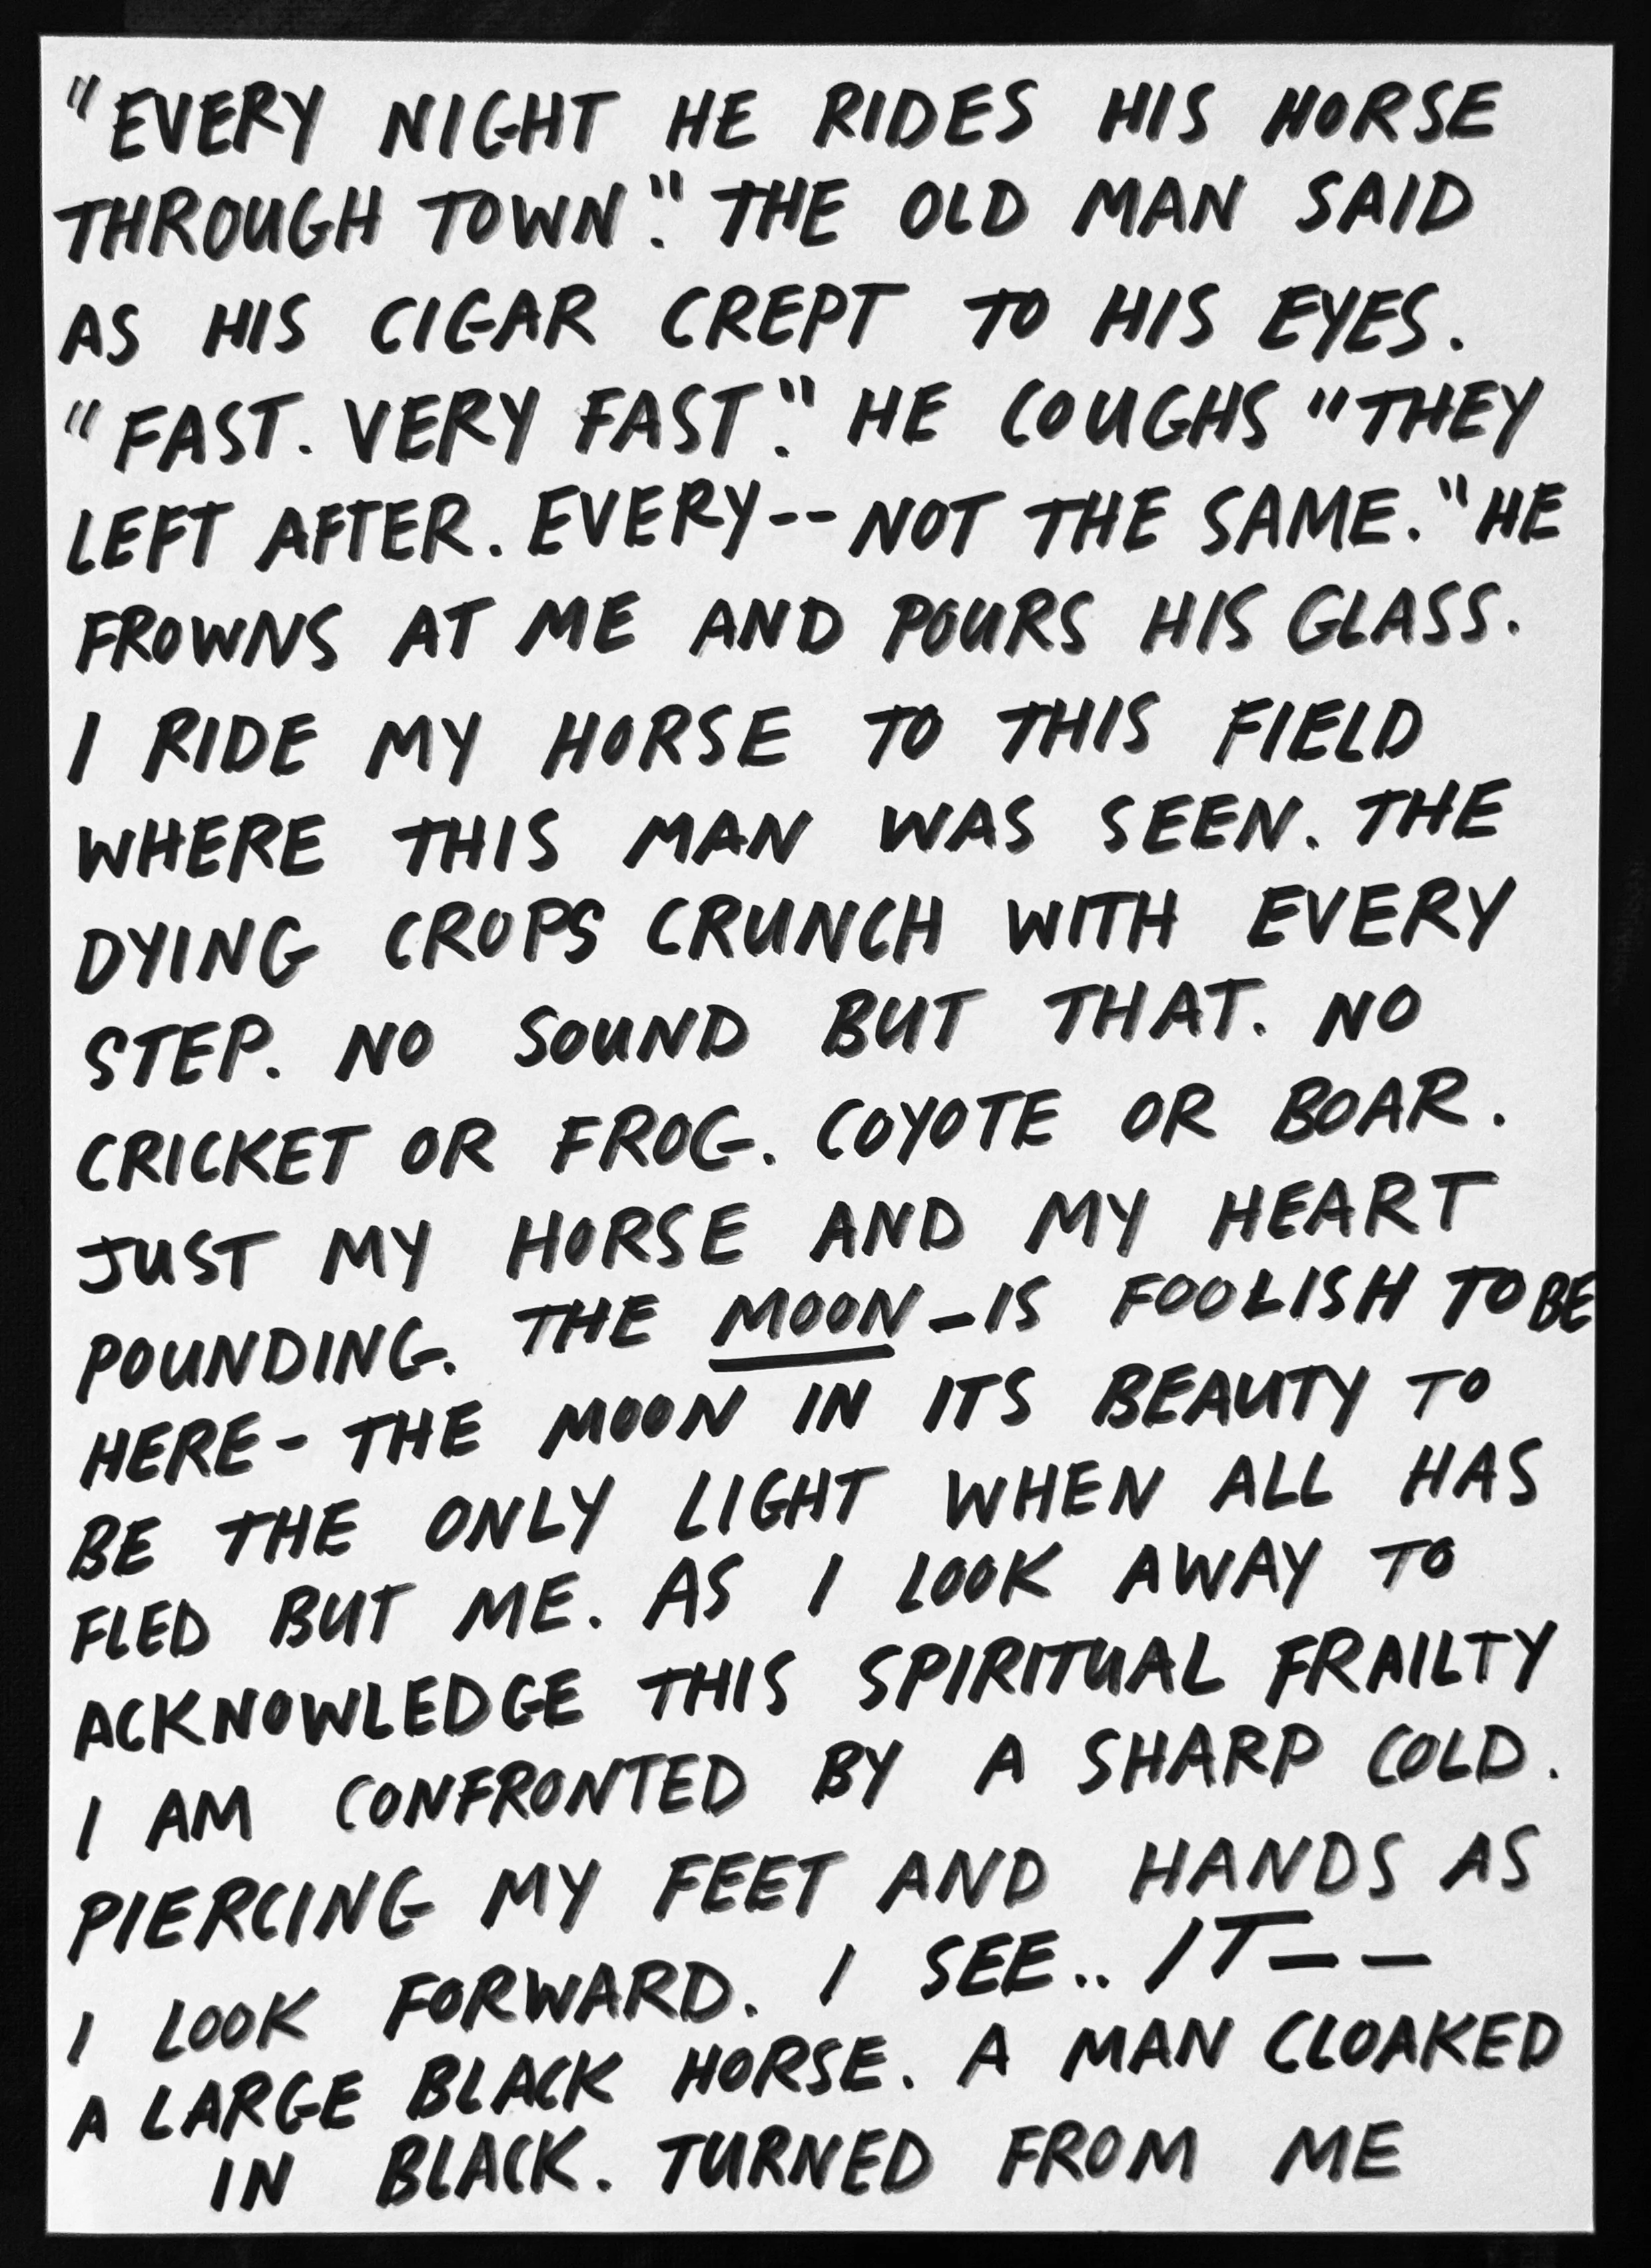 "EVERY NIGHT HE RIDES HIS HORSE
THROUGH TOWN." THE OLD MAN SAID
AS HIS CIGAR CREPT TO HIS EYES.
"FAST. VERY FAST." HE COUGHS "THEY
LEFT AFTER. EVERY-- NOT THE SAME." HE
FROWNS AT ME AND POURS HIS GLASS.
I RIDE MY HORSE TO THIS FIELD
WHERE THIS MAN WAS SEEN. THE
DYING CROPS CRUNCH WITH EVERY
STEP. NO SOUND BUT THAT. NO
CRICKET OR FROG. COYOTE OR BOAR.
JUST MY HORSE AND MY HEART
POUNDING. THE MOON - IS FOOLISH TO BE
HERE - THE MOON IN ITS BEAUTY TO
BE THE ONLY LIGHT WHEN ALL HAS
FLED BUT ME. AS I LOOK AWAY TO
ACKNOWLEDGE THIS SPIRITUAL FRAILTY
I AM CONFRONTED BY A SHARP COLD.
PIERCING MY FEET AND HANDS AS
I LOOK FORWARD. I SEE.. IT--
A LARGE BLACK HORSE. A MAN CLOAKED
IN BLACK. TURNED FROM ME